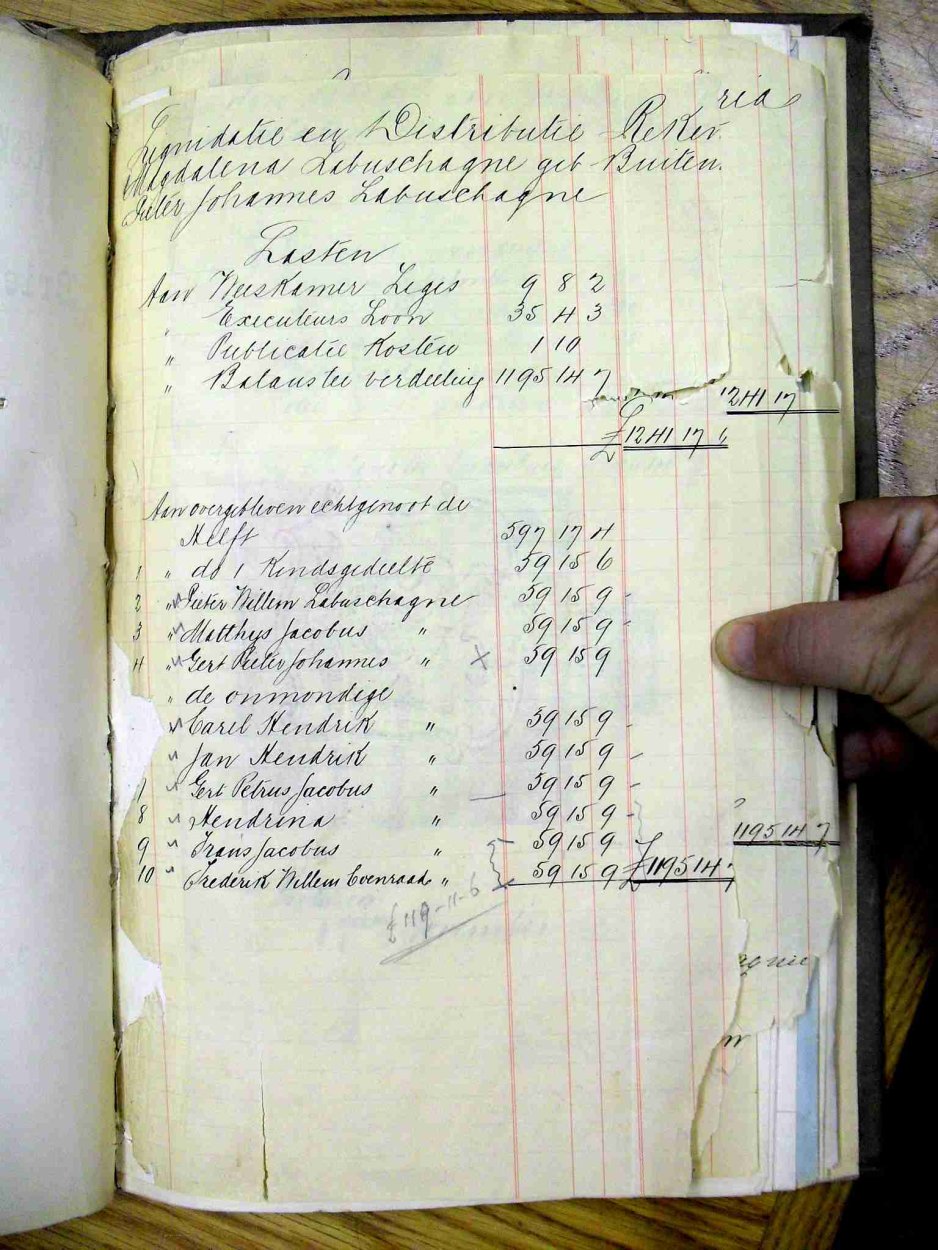 ria
Liquidatie en Distributie Reken
Magdalena Labuschagne geb Buiten.
Pieter Johannes Labuschagne
Lasten
Aan Weeskamer Leges 9 8 2
" Executeurs Loon 35 4 3
" Publicatie Kosten 1 10
" Balans ter verdeeling 1195 14 7
1241 17
£1241 17 6
Aan overgebleven echtgenoot de
Helft 597 17 4
1 " do 1 Kindsgedeelte 59 15 6
2 " Pieter Willem Labuschagne 59 15 9
3 " Matthys Jacobus " 59 15 9
4 " Gert Pieter Johannes " X 59 15 9
" de onmondige
Carel Hendrik " 59 15 9
Jan Hendrik " 59 15 9
7 Gert Petrus Jacobus " 59 15 9
8 Hendrina " 59 15 9
1195 14 7
9 Frans Jacobus " 59 15 9
10 Frederik Willem Coenraad " 59 15 9 £1195 14
£119-11-6